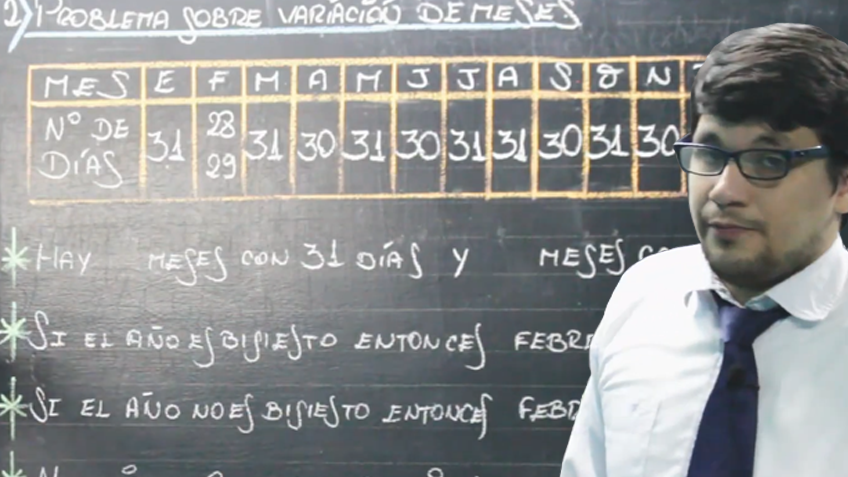 2) PROBLEMA SOBRE VARIACIÓN DE MESES
MES E F M A M J J A S O N
Nº DE DÍAS 31 28 29 31 30 31 30 31 31 30 31 30
* HAY MESES CON 31 DÍAS Y MESES CO
* SI EL AÑO ES BISIESTO ENTONCES FEBRE
* SI EL AÑO NO ES BISIESTO ENTONCES FEB